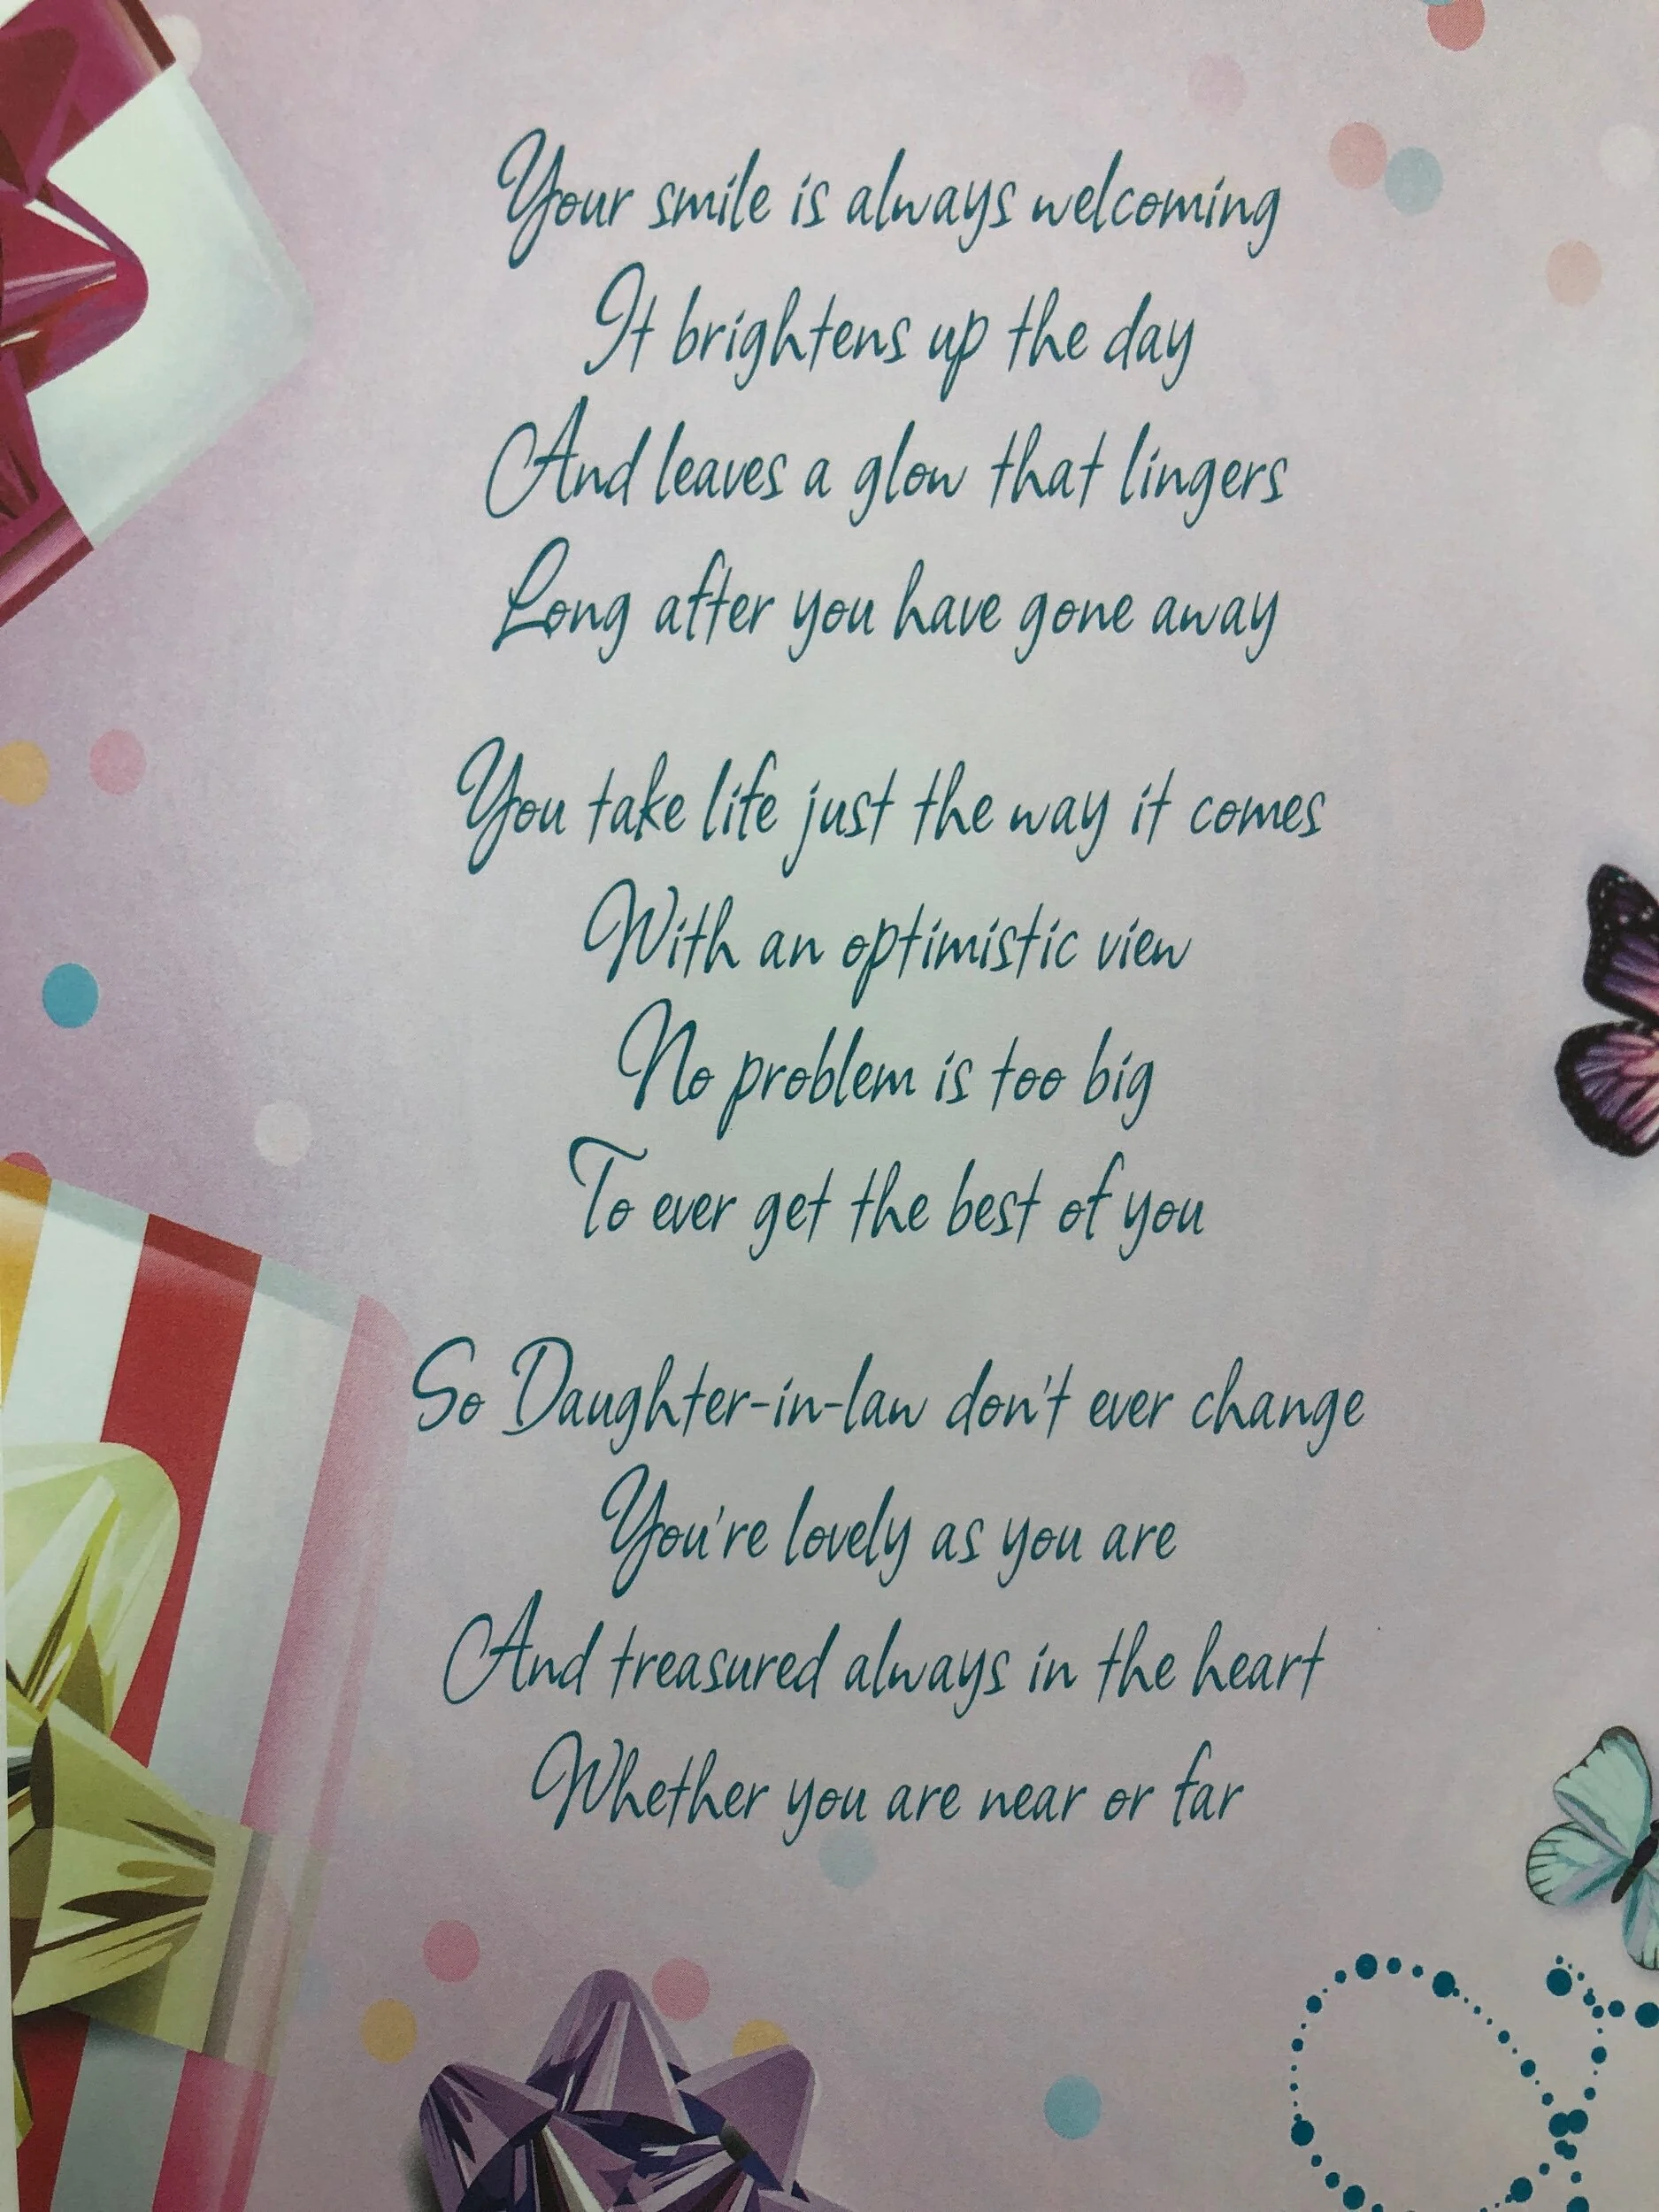 Your smile is always welcoming
It brightens up the day
And leaves a glow that lingers
Long after you have gone away
You take life just the way it comes
With an optimistic view
No problem is too big
To ever get the best of you
So Daughter-in-law don't ever change
You're lovely as you are
And treasured always in the heart
Whether you are near or far